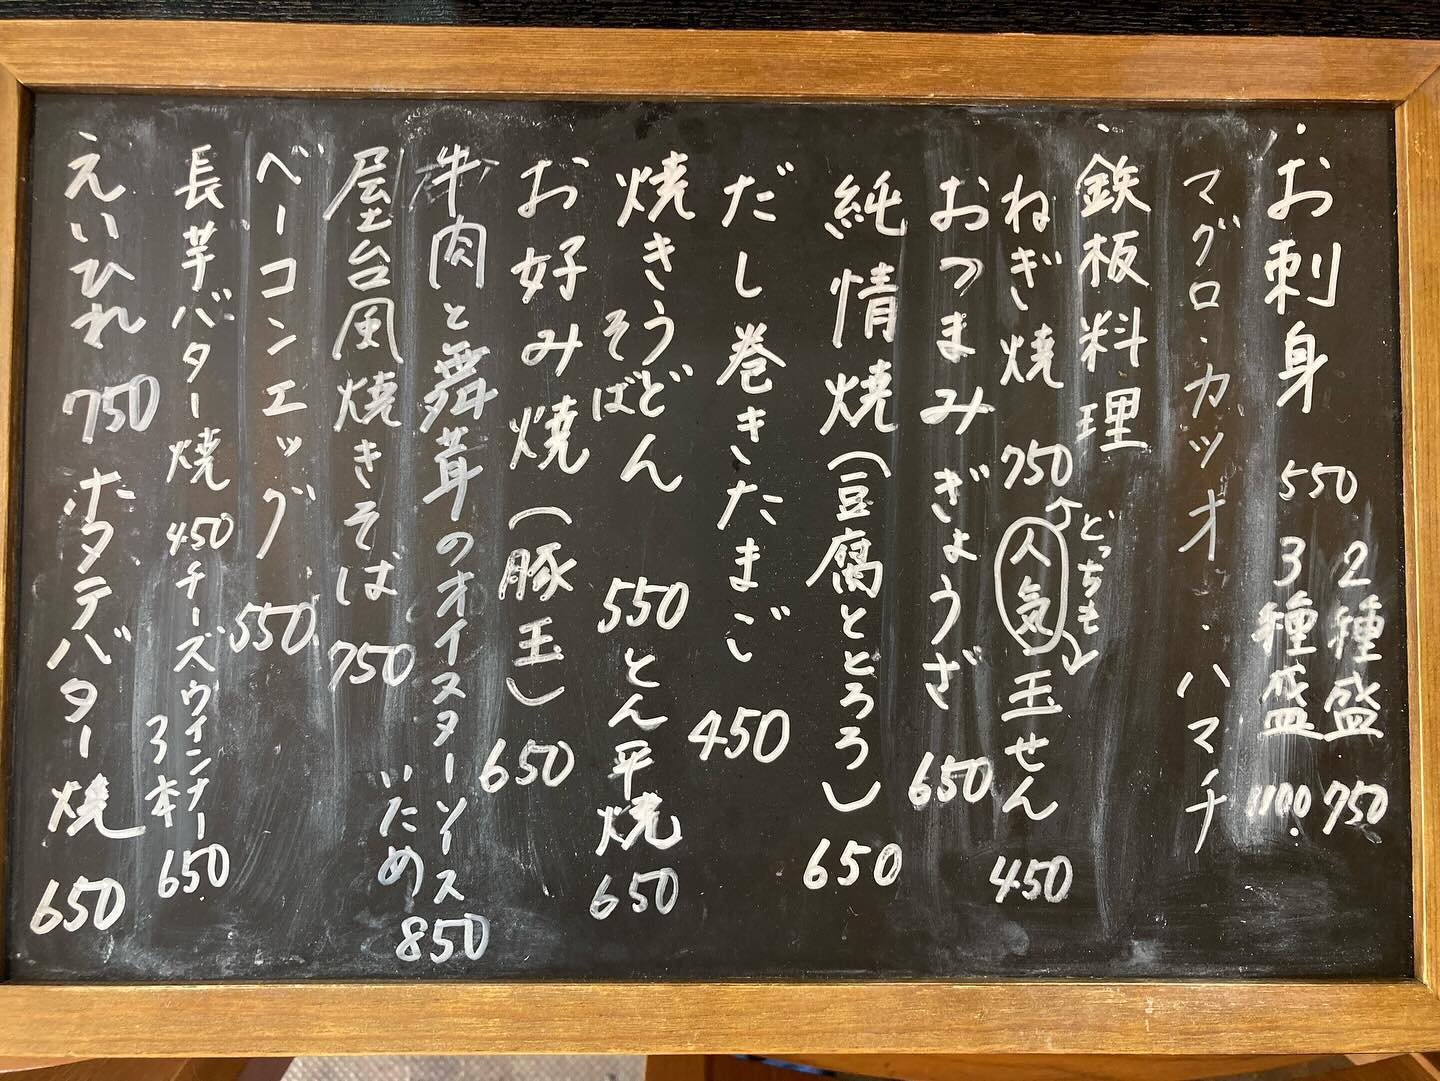 ・お刺身 550 2種盛 750
3種盛 1100.
マグロ・カツオ・ハマチ
・鉄板料理
どっちも
ねぎ焼 750 人気 玉せん 450
おつまみぎょうざ 650
純情焼(豆腐ととろろ) 650
だし巻きたまご 450
焼きうどん 550 とん平焼 650
そば
お好み焼(豚玉) 650
牛肉と舞茸のオイスターソース
いため 850
屋台風焼きそば 750
ベーコンエッグ 550
長芋バター焼 450 チーズウインナー
3本 650
・えいひれ 750 ホタテバター焼 650